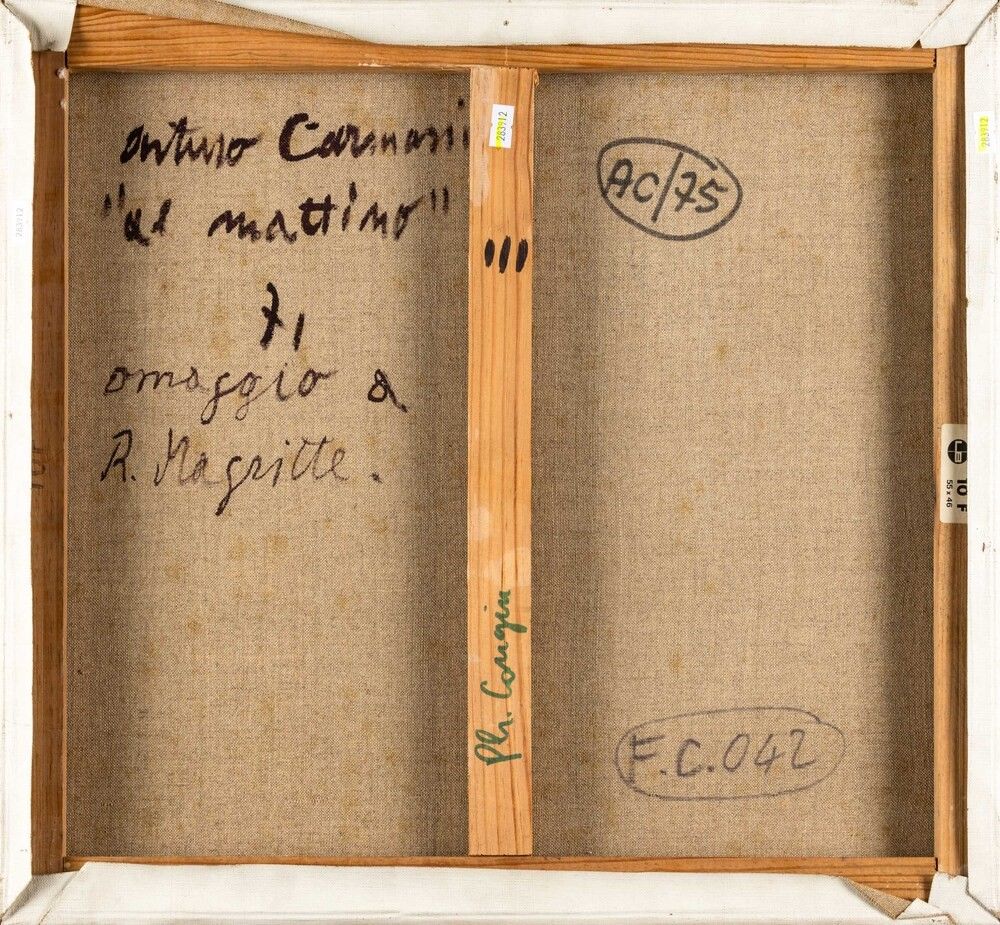 arturo Carmassi
"al mattino"
71
omaggio a
R. Magritte.
283912
III
Ph. Congiu
AC/75
F.C.042
283912
283912
10 F
55 x 46